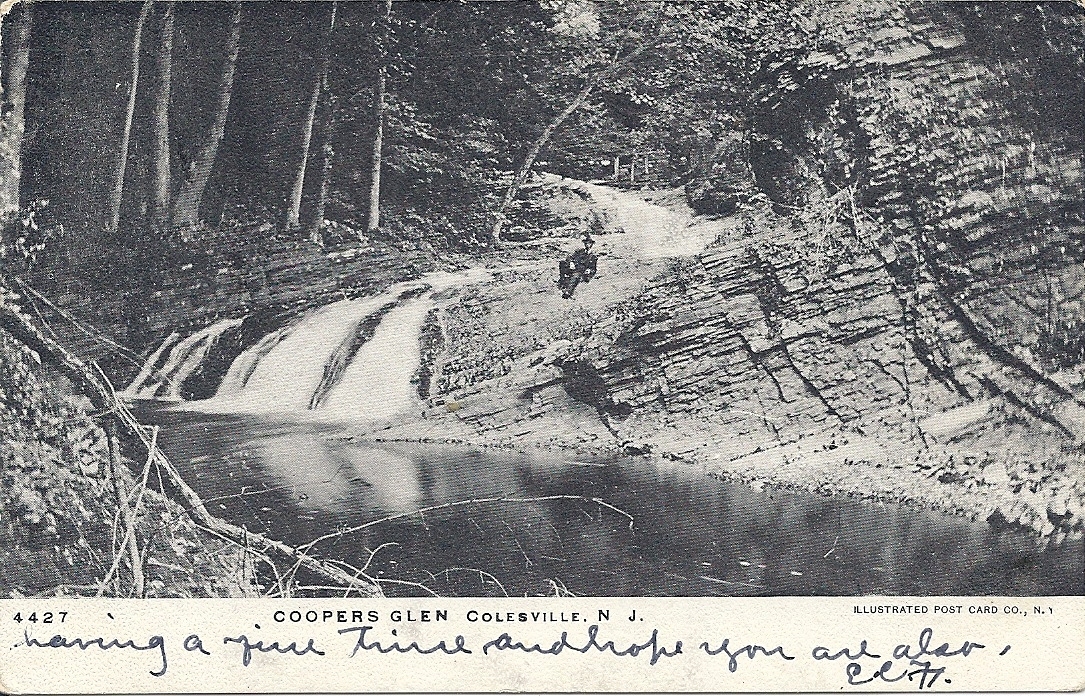 4427 COOPERS GLEN COLESVILLE, N J. ILLUSTRATED POST CARD CO., N.Y
having a fine time and hope you are also,
E.C.H.